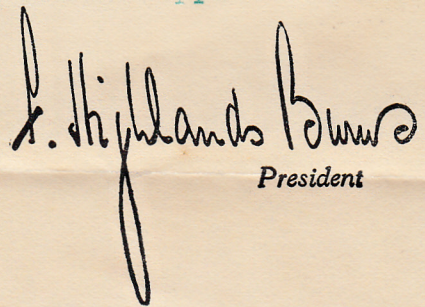 F. Highlands Burns
President